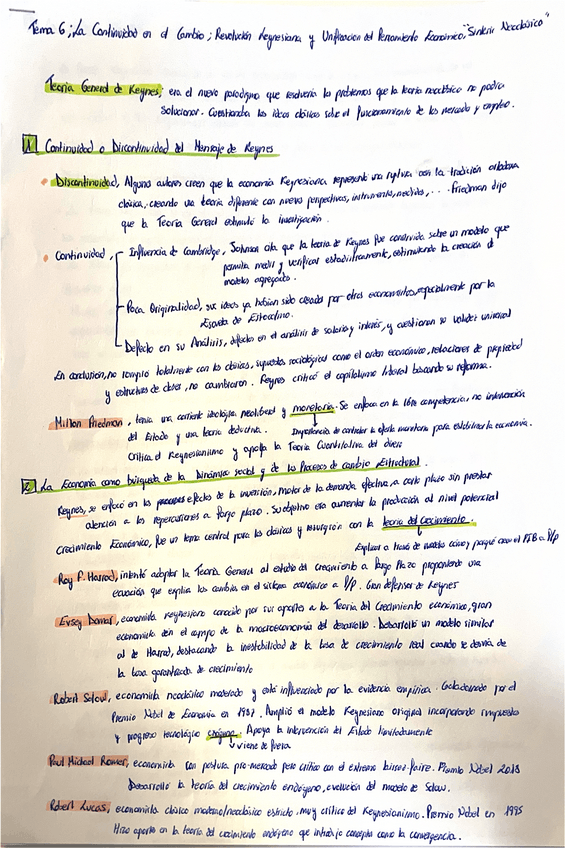 Tema 6; La Continuidad en el Cambio; Revolución Keynesiana y Unificación del Pensamiento Económico, "Síntesis Neoclásica"
Teoría General de Keynes; era el nuevo paradigma que resolvería los problemas que la teoría neoclásica no podía
solucionar. Cuestionaba las ideas clásicas sobre el funcionamiento de los mercados y empleo.
1 Continuidad o Discontinuidad del Mensaje de Keynes
• Discontinuidad, Algunos autores creen que la economía Keynesiana representó una ruptura con la tradición ortodoxa
clásica, creando una teoría diferente con nuevas perspectivas, instrumentos, medidas, ... Friedman dijo
que la Teoría General estimuló la investigación.
• Continuidad, Influencia de Cambridge, que la teoría de Keynes fue construida sobre un modelo que
permitía medir y verificar estadísticamente, estimulando la creación de
modelos agregados.
Poca Originalidad, sus ideas ya habían sido creadas por otros economistas, especialmente por la
Escuela de Estocolmo.
Defecto en su Análisis, defectos en el análisis de salarios y interés, y cuestionan su validez universal
En conclusión, no rompió totalmente con los clásicos, supuestos sociológicos como el orden económico, relaciones de propiedad
y estructuras de clases, no cambiaron. Keynes criticó el capitalismo liberal buscando su reforma.
Milton Friedman, tenía una corriente ideológica neoliberal y monetaria. Se enfoca en la libre competencia, no intervención
del Estado y una teoría deductiva. Importancia de controlar la oferta monetaria para estabilizar la economía.
Critica el Keynesianismo y apoya la Teoría Cuantitativa del dinero
2 La Economía como búsqueda de la Dinámica social y de los Procesos de cambio Estructural.
Keynes, se enfocó en los efectos de la inversión, motor de la demanda efectiva, a corto plazo sin prestar
atención a las repercusiones a largo plazo. Su objetivo era aumentar la producción al nivel potencial
Crecimiento Económico, fue un tema central para los clásicos y resurgió con la teoría del crecimiento.
Explicar a través de modelos cómo y porqué crece el PIB a l/p
Roy F. Harrod, intentó adaptar la Teoría General al estudio del crecimiento a largo plazo proponiendo una
ecuación que explica los cambios en el sistema económico a l/p. Gran defensor de Keynes
Evsey Domar, economista Keynesiano conocido por sus aportes a la Teoría del Crecimiento económico, gran
economista en el campo de la macroeconomía del desarrollo. Desarrolló un modelo similar
al de Harrod, destacando la inestabilidad de la tasa de crecimiento real cuando se desvía de
la tasa garantizada de crecimiento
Robert Solow, economista neoclásico moderado y está influenciado por la evidencia empírica. Galardonado por el
Premio Nobel de Economía en 1987. Amplió el modelo Keynesiano original incorporando impuestos
y progreso tecnológico exógeno. Apoya la intervención del Estado limitadamente
viene de fuera
Paul Michael Romer, economista con postura pro-mercado pero crítico con el extremo laissez-faire. Premio Nobel 2018
Desarrolló la teoría del crecimiento endógeno, evolución del modelo de Solow.
Robert Lucas, economista clásico moderno/neoclásico estricto, muy crítico del Keynesianismo. Premio Nobel en 1995
Hizo aportes en la teoría del crecimiento endógeno que introdujo conceptos como la convergencia.